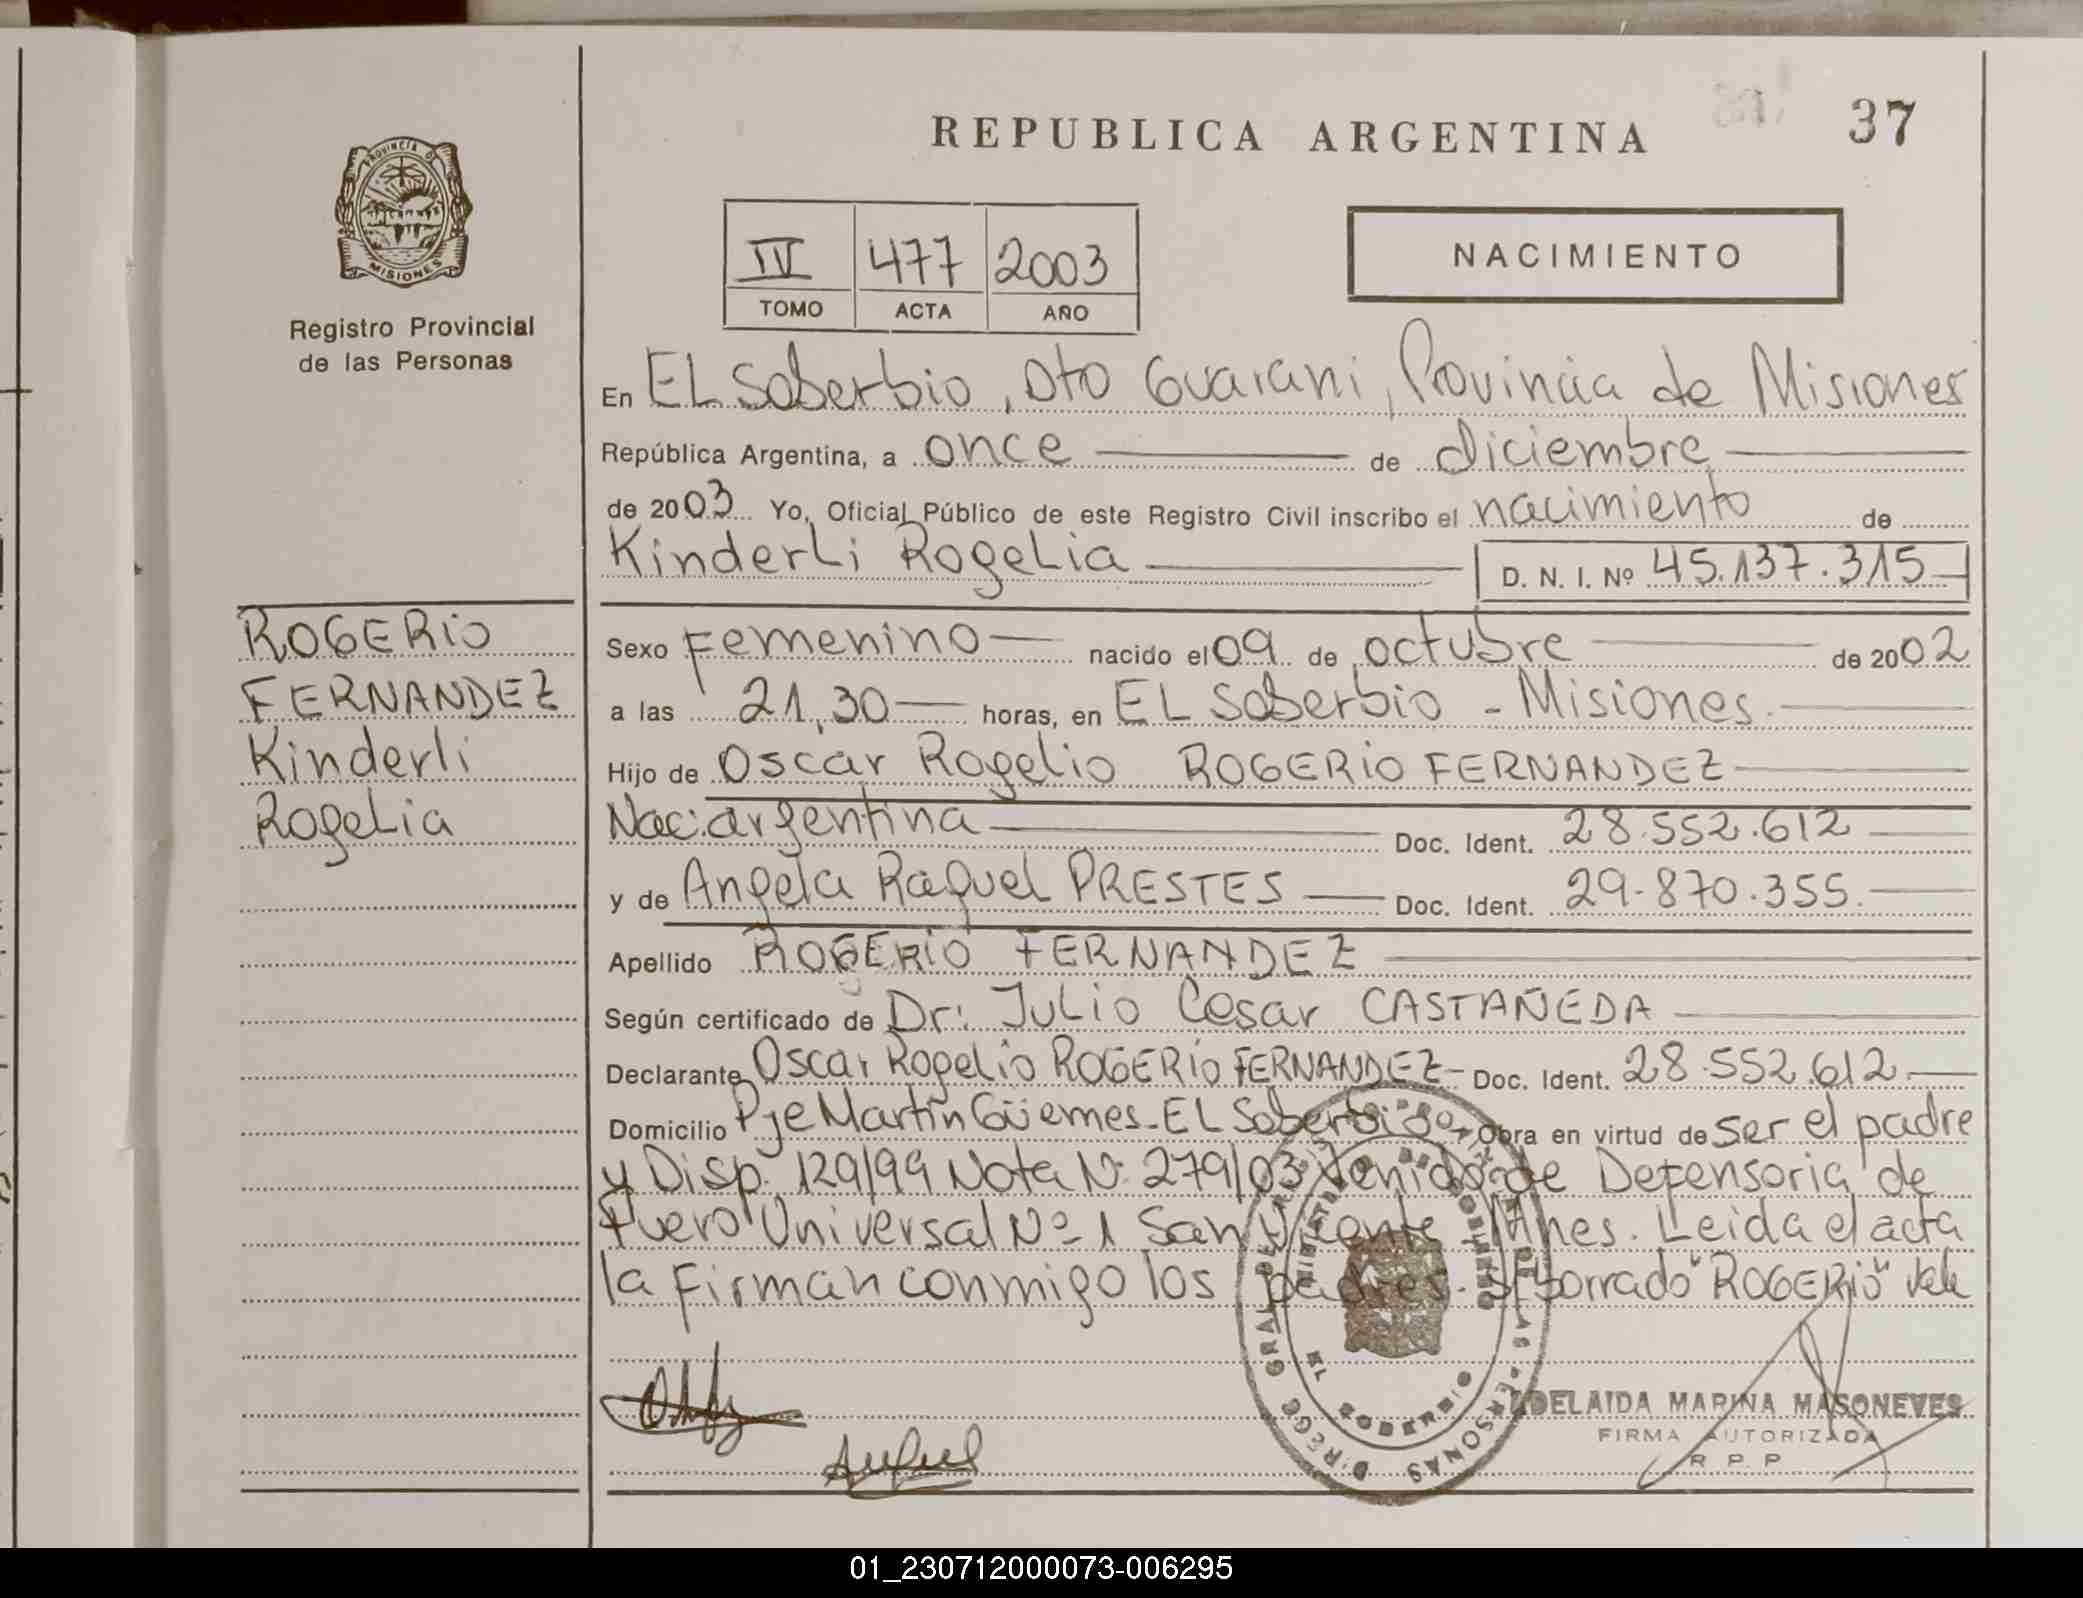 REPUBLICA ARGENTINA
37
PROVINCIA DE
MISIONES
Registro Provincial
de las Personas
IV 477 2003
TOMO ACTA AÑO
NACIMIENTO
En EL Soberbio, Dto Guarani, Provincia de Misiones
República Argentina, a once de diciembre
de 2003 Yo, Oficial Público de este Registro Civil inscribo el nacimiento de
Kinderli Rogelia D. N. I. Nº 45.137.315
ROGERIO
FERNANDEZ
Kinderli
Rogelia
Sexo Femenino nacido el 09 de octubre de 2002
a las 21,30 horas, en EL Soberbio - Misiones.
Hijo de Oscar Rogelio ROGERIO FERNANDEZ
Nac: argentina Doc. Ident. 28.552.612
y de Angela Raquel PRESTES Doc. Ident. 29.870.355.
Apellido ROGERIO FERNANDEZ
Según certificado de Dr: Julio Cesar CASTAÑEDA
Declarante Oscar Rogelio ROGERIO FERNANDEZ - Doc. Ident. 28.552.612.
Domicilio Pje Martín Güemes - EL Soberbio, Obra en virtud de ser el padre
y Disp. 129/99 Nota Nº 279/03 Venido de Defensoria de
Fuero Universal Nº 1 San Vicente Mnes. Leida el acta
la firman conmigo los padres. S/borrado "ROGERIO" Vale
DIREC. GRAL. DEL REGISTRO PROVINCIAL DE LAS PERSONAS
MINISTERIO DE GOBIERNO
EL SOBERBIO
ADELAIDA MARINA MASONEVES
FIRMA AUTORIZADA
R P P
01_230712000073-006295